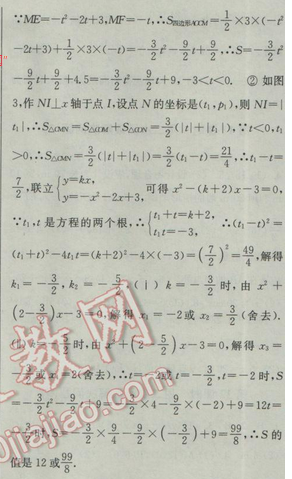 ∵ME=-t²-2t+3,MF=-t,∴S四边形ACOM=1/2×3×(-t²
-2t+3)+1/2×3×(-t)=-3/2t²-9/2t+9/2,∴S=-3/2t²
-9/2t+9/2+4.5=-3/2t²-9/2t+9,-3<t<0. ②如图
3,作NI⊥x轴于点I,设点N的坐标是(t₁,p₁),则NI=|
t₁|,∴S△CMN=S△COM+S△CON=3/2(|t|+|t₁|),∵t<0,t₁
>0,∴S△CMN=3/2(|t|+|t₁|)=3/2(t₁-t)=21/4,∴t₁-t=
7/2,联立{y=kx, y=-x²-2x+3, 可得x²-(k+2)x-3=0,
∵t₁,t是方程的两个根,∴{t₁+t=k+2, t₁t=-3, ∴(t₁-t)²=
(t₁+t)²-4t₁t=(k+2)²-4×(-3)=(7/2)²=49/4,解得
k₁=-3/2,k₂=-5/2.(ⅰ)k=-3/2时,由x²+
(2-3/2)x-3=0,解得x₁=-2或x₂=3/2(舍去).
(ⅱ)k=-5/2时,由x²+(2-5/2)x-3=0,解得x₃=
-3/2或x₄=2(舍去),∴t=-2或t=-3/2,t=-2时,S
=-3/2t²-9/2t+9=-3/2×4-9/2×(-2)+9=12t=
-3/2时,S=-3/2×9/4-9/2×(-3/2)+9=99/8,∴S的
值是12或99/8.